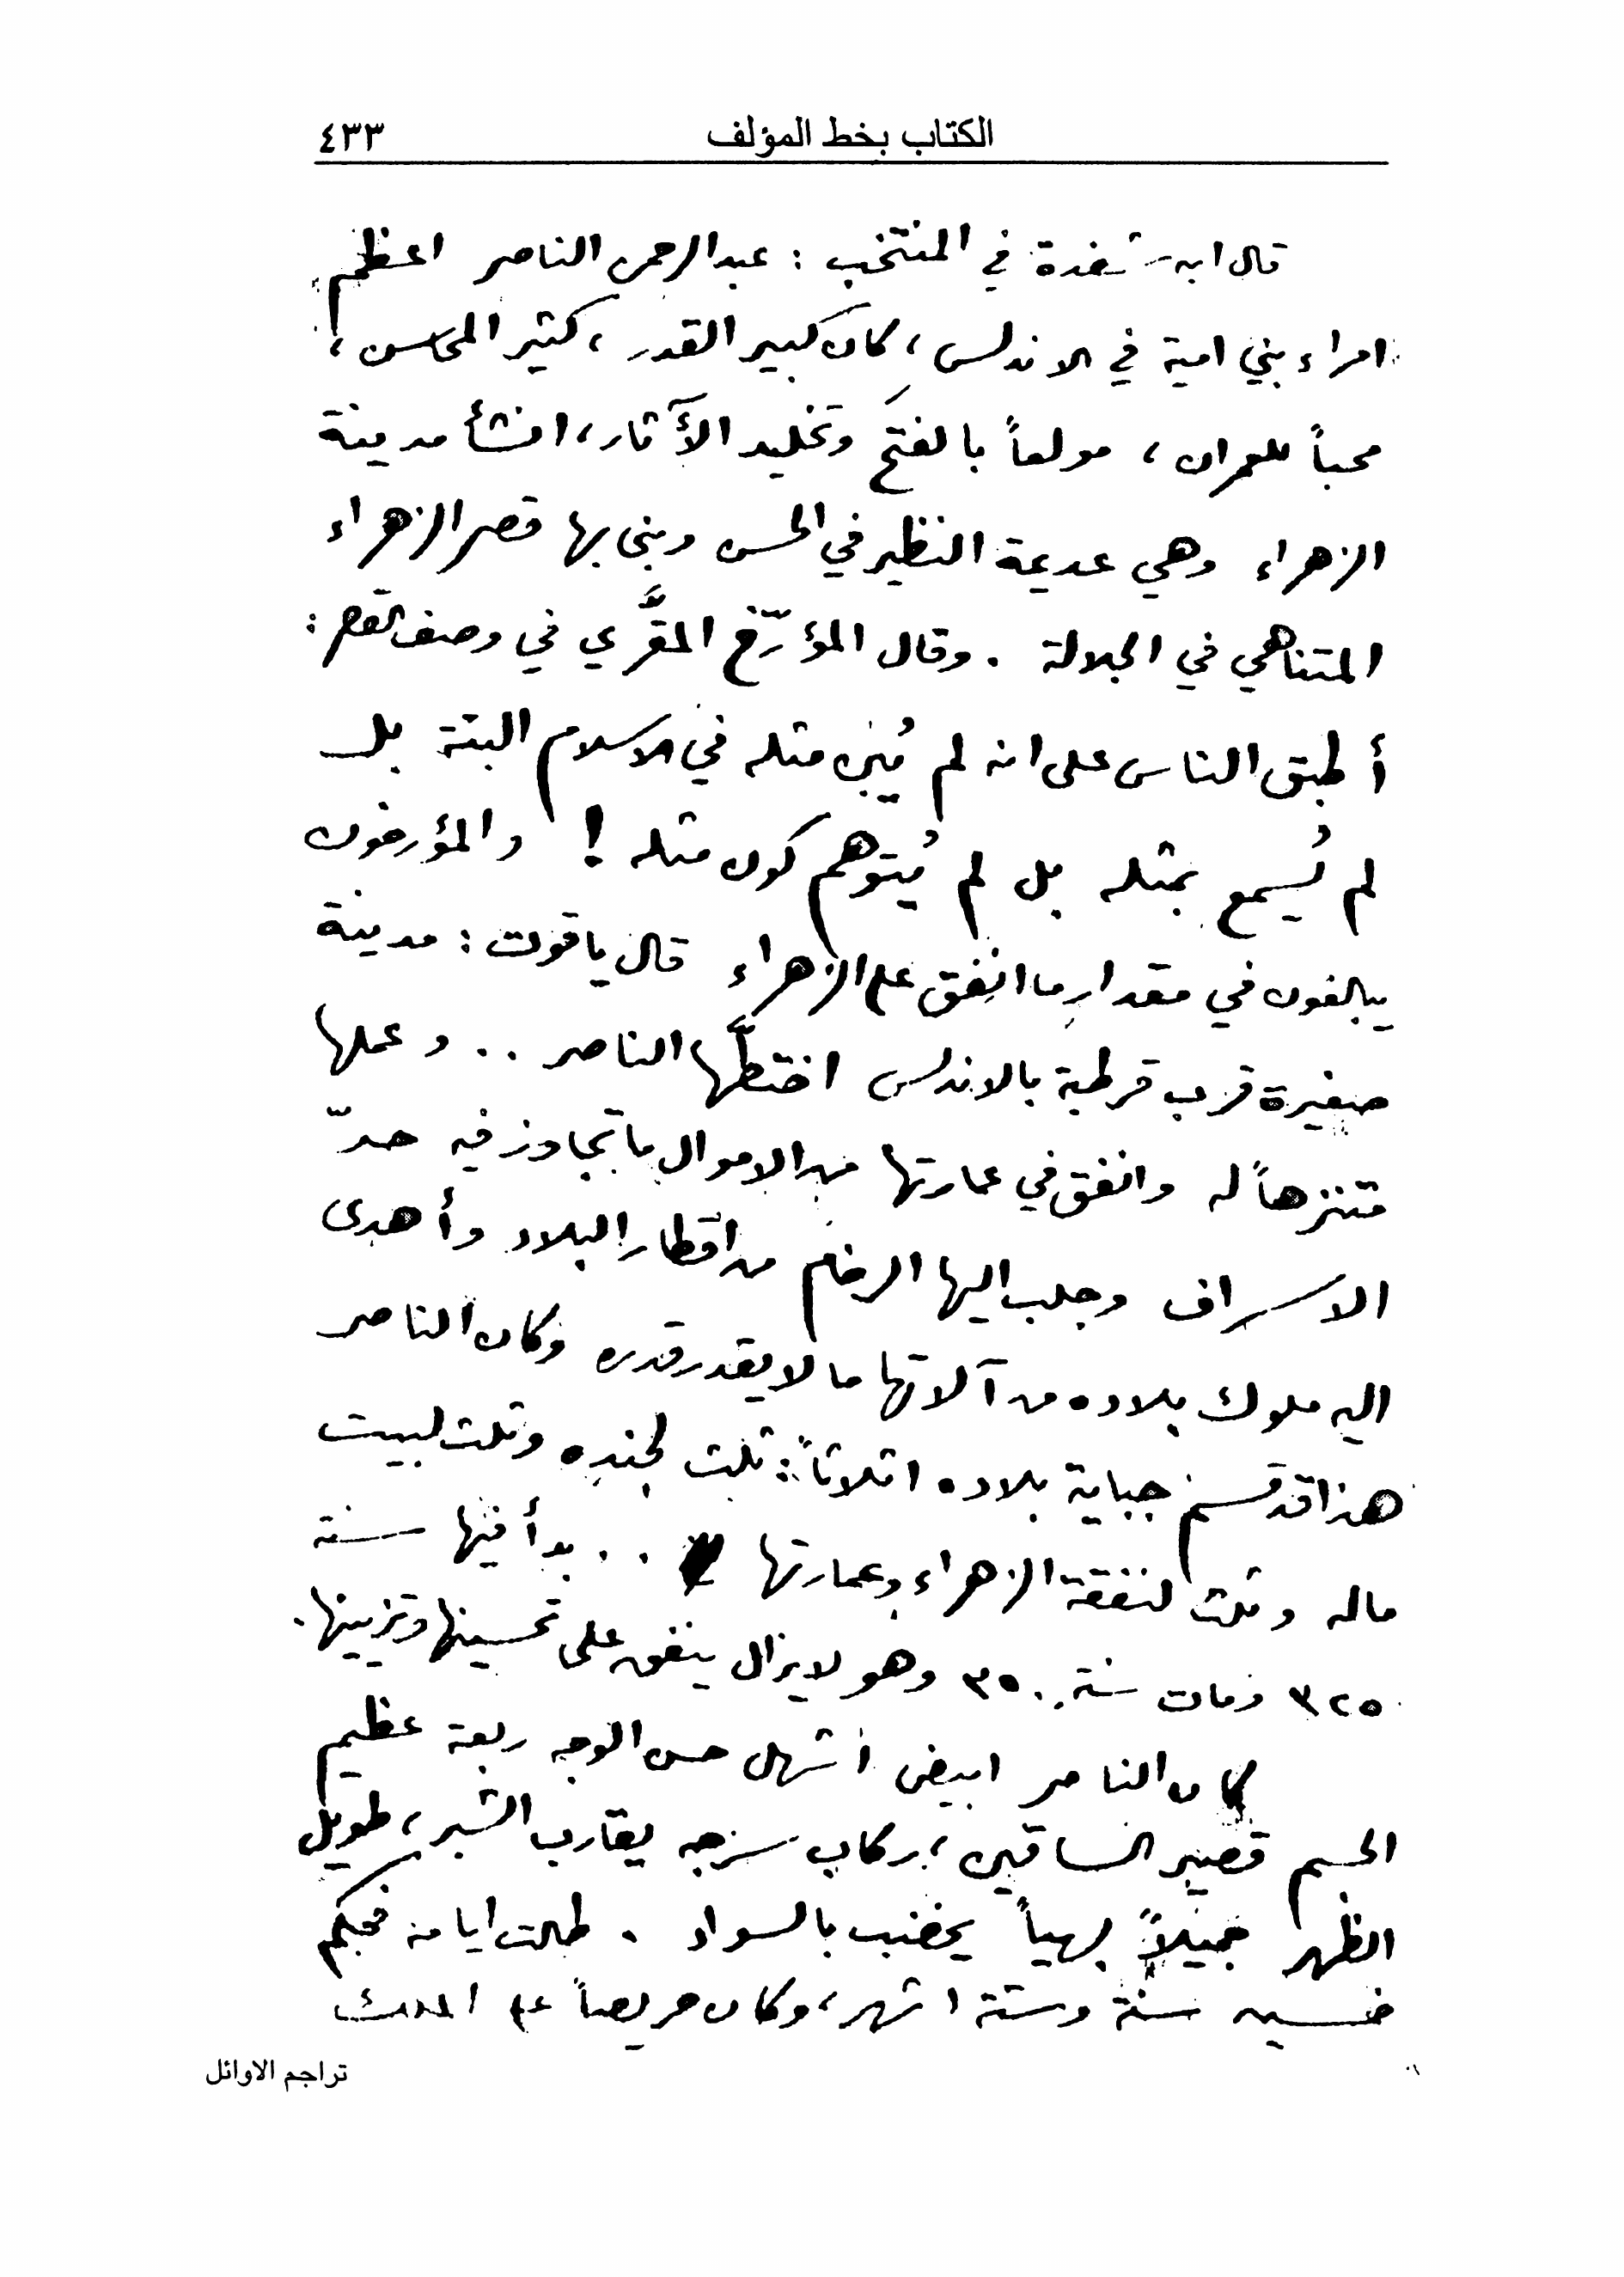 الكتاب بخط المؤلف ٤٣٣
قال ابن شغدة في المنتخب : عبدالرحمن الناصر اعظم
امراء بني امية في الاندلس ، كان كبير القدر ، كثير المحاسن ،
محباً للعمران ، مولعاً بالفتح وتخليد الآثار ، انشأ مدينة
الزهراء وهي عديمة النظير في الحسن وبنى بها قصر الزهراء
المتناهي في الجلالة . وقال المؤرّخ المقَّري في وصف القصر :
أطبق الناس على انه لم يُبن مثله في الاسلام البتة بل
لم يُسمع بمثله بل لم يُتوهم كون مثله ! والمؤرخون
يبالغون في مقدار ما انفق على الزهراء قال ياقوت : مدينة
صغيرة قرب قرطبة بالاندلس اختطَّها الناصر .. وعملها
متنزهاً له وانفق في عمارتها من الاموال ما تجاوز فيه حدّ
الاسراف وجلب اليها الرخام من اقطار البلاد وأهدى
اليه ملوك بلاده من آلاتها ما لا يقدر قدره وكان الناصر
هذا قد قسم جباية بلاده اثلاثاً : ثلث لجنده وثلث لبيت
ماله وثلث لنفقة الزهراء وعمارتها .. بدأ فيها سنة
٣٢٥ ومات سنة ٣٥٠ وهو لا يزال ينفق على تحسينها وتزيينها .
كان الناصر ابيض اشهل حسن الوجه ربعة عظيم
الجسم قصير الساقين ، ركاب سرجه يقارب الشبر ، طويل
الظهر جميلاً بهياً يخضب بالسواد . طالت ايامه فحكم
خمسين سنة وستة اشهر ، وكان حريصاً على الملك
تراجم الاوائل